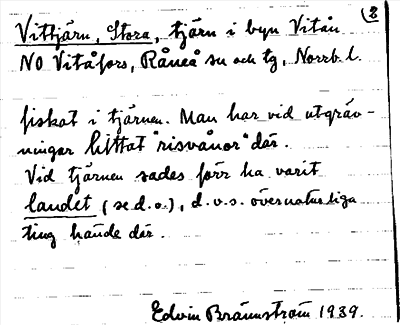 2
Vittjärn, Stora, tjärn i byn Vitån
NO Vitåfors, Råneå sn och tg, Norrb. l.
fiskat i tjärnen. Man har vid utgräv-
ningar hittat "risvånor" där.
Vid tjärnen sades förr ha varit
landet (se d.o.), d.v.s. övernaturliga
ting hände där.
Edvin Brännström 1939.